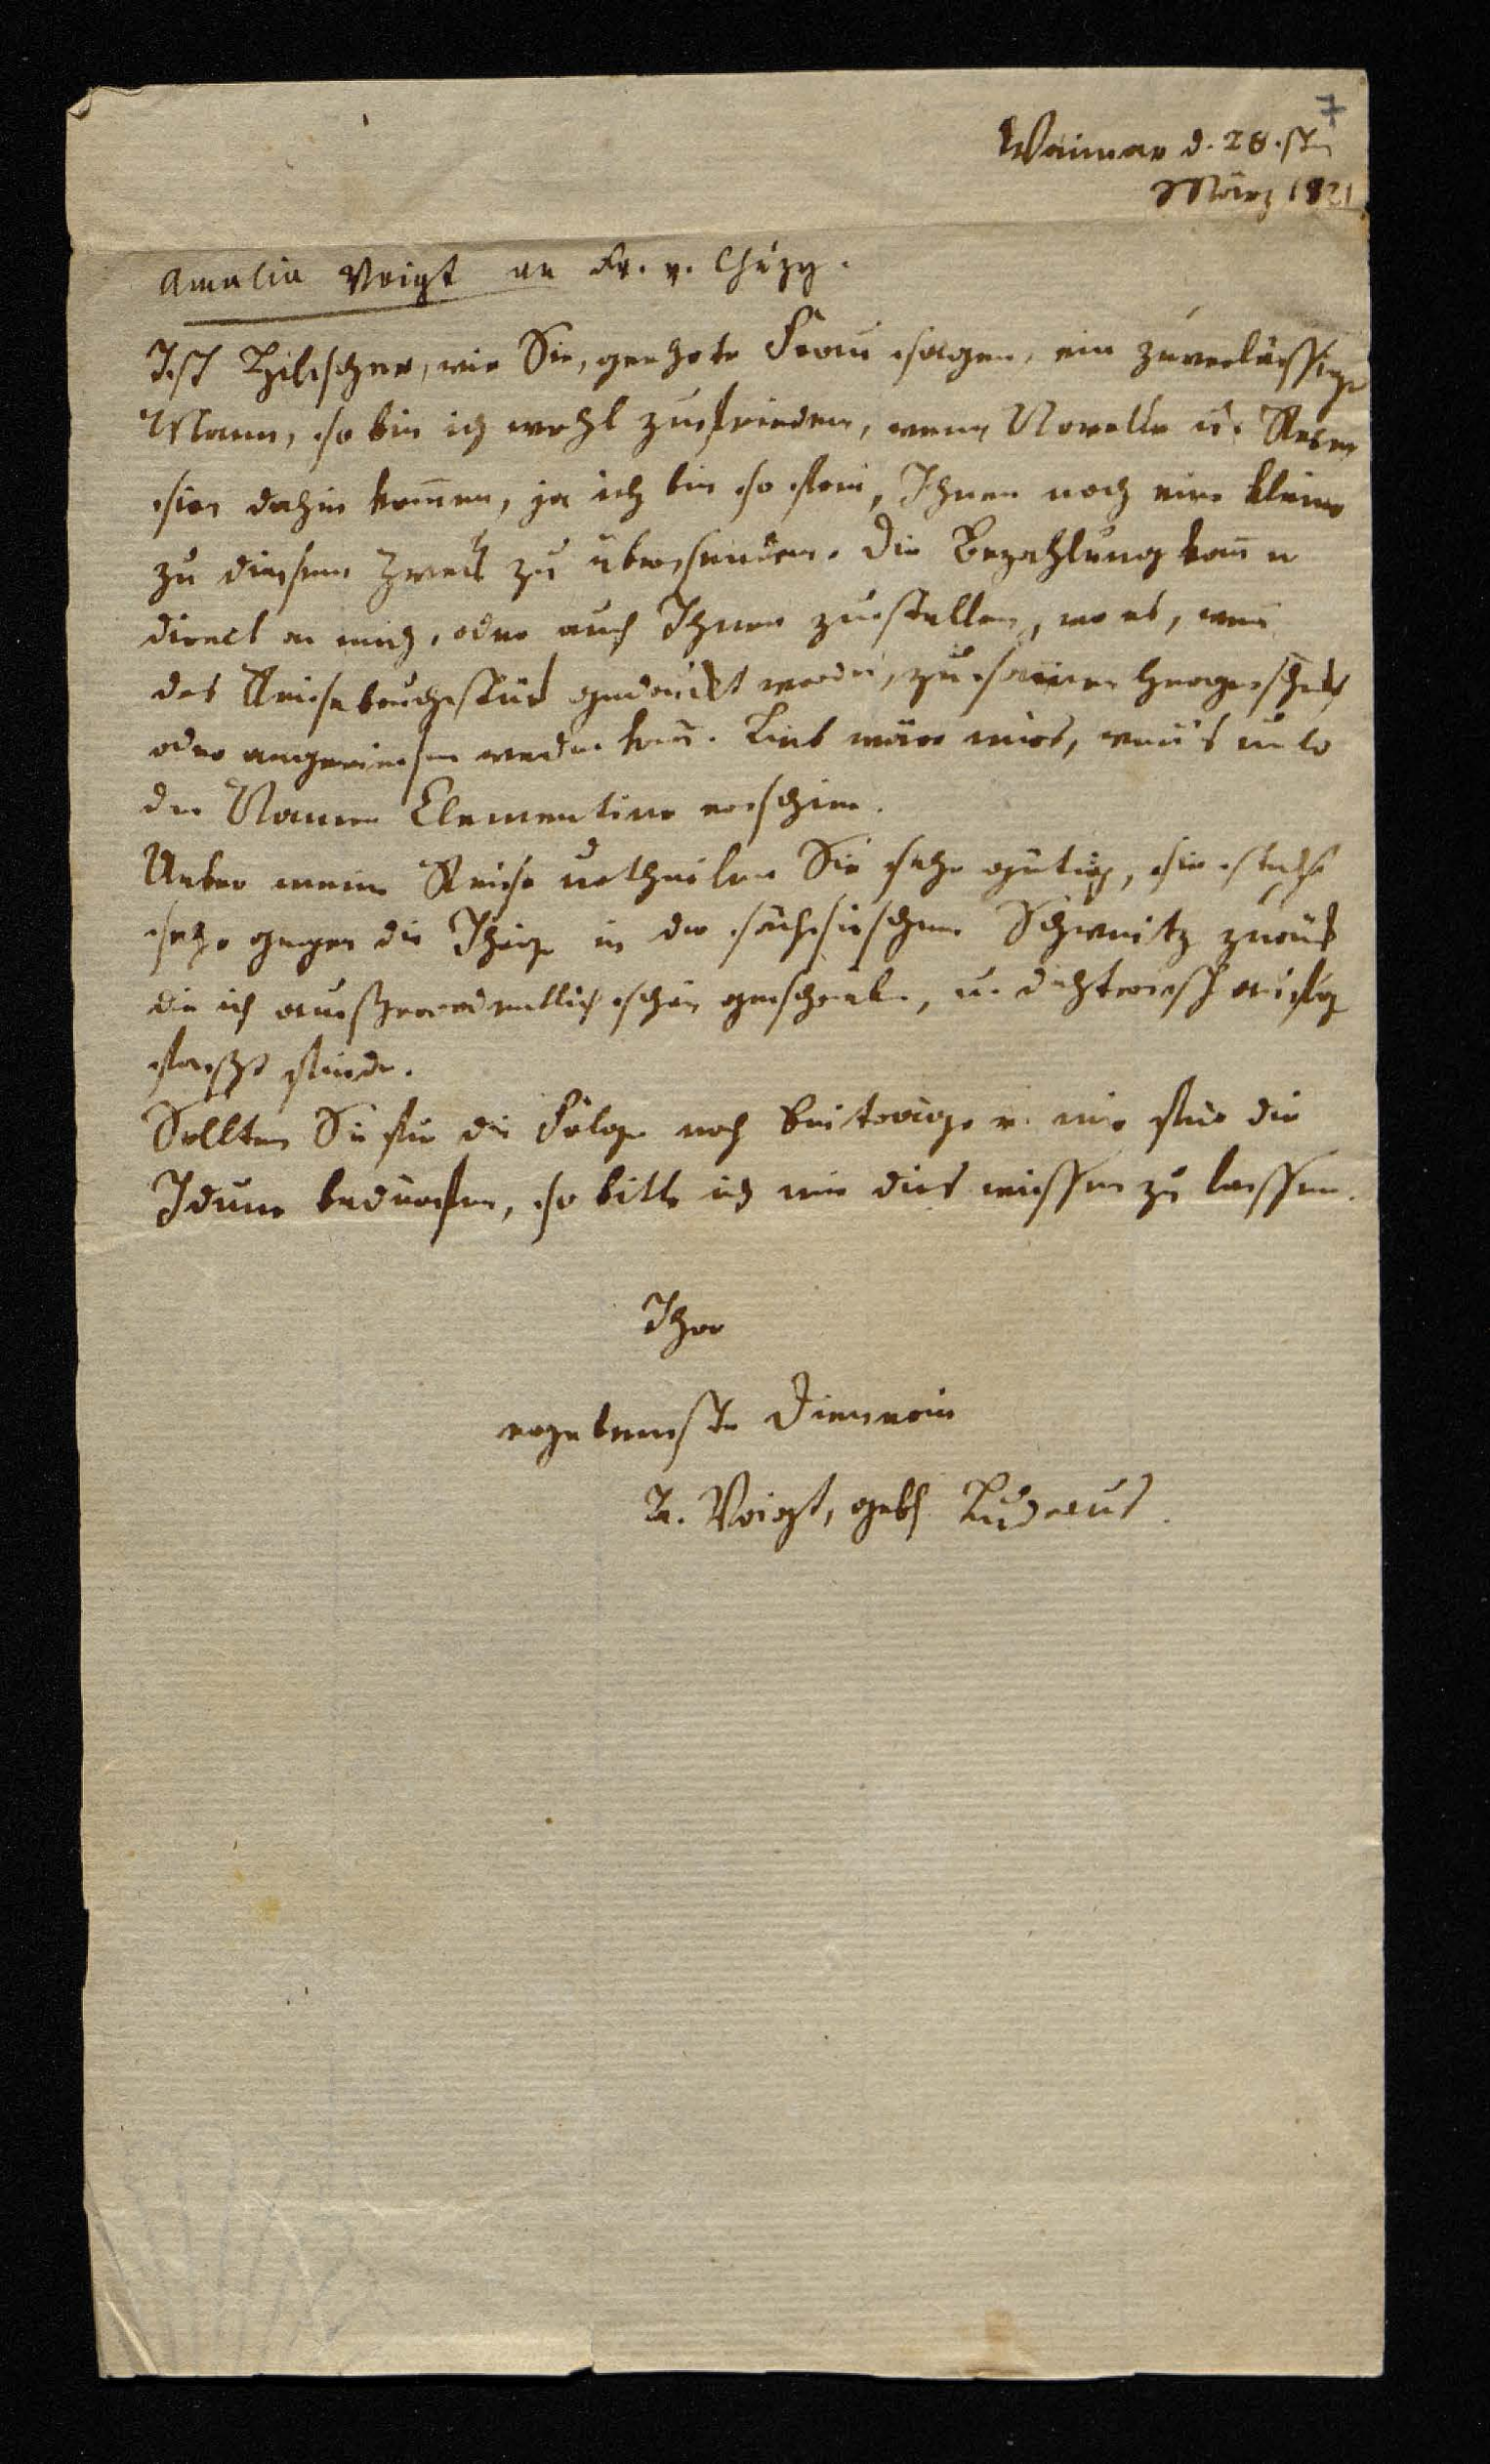 7
Weimar d. 28.sten
März 1821
Amalia Voigt an Fr. v. Chézy.
Ist Hilscher, wie Sie, geehrte Frau sagen, ein zuverlässiger
Mann, so bin ich wohl zufrieden, wenn Novelle u.
dahin kom̅en, ja ich bin so frei, Ihnen noch eine kleine
zu diesem Zweck zu übersenden. Die Bezahlung kan̅ er
direct an mich, oder auch Ihnen zustellen, wo es, wen̅
das Reisebruchstück gedruckt worden, zu
oder angewiesen werden kan̅. Lieb wäre mirs, wen̅'s unter
den Namen Clementine erschien.
Ueber meine Reise urtheilen Sie sehr gütig, sie steht
sehr gegen die Ihrige in der sächsischen Schweitz zurück
die ich außerordentlich schön geschrieben, u. dichterisch aufge
faßt finde.
Sollten Sie für die Folge noch Beitraege v. mir für die
Iduna bedürfen, so bitte ich mir dies wissen zu lassen.
Ihre
ergebenste Dienerin
A. Voigt, geb. Ludecus.